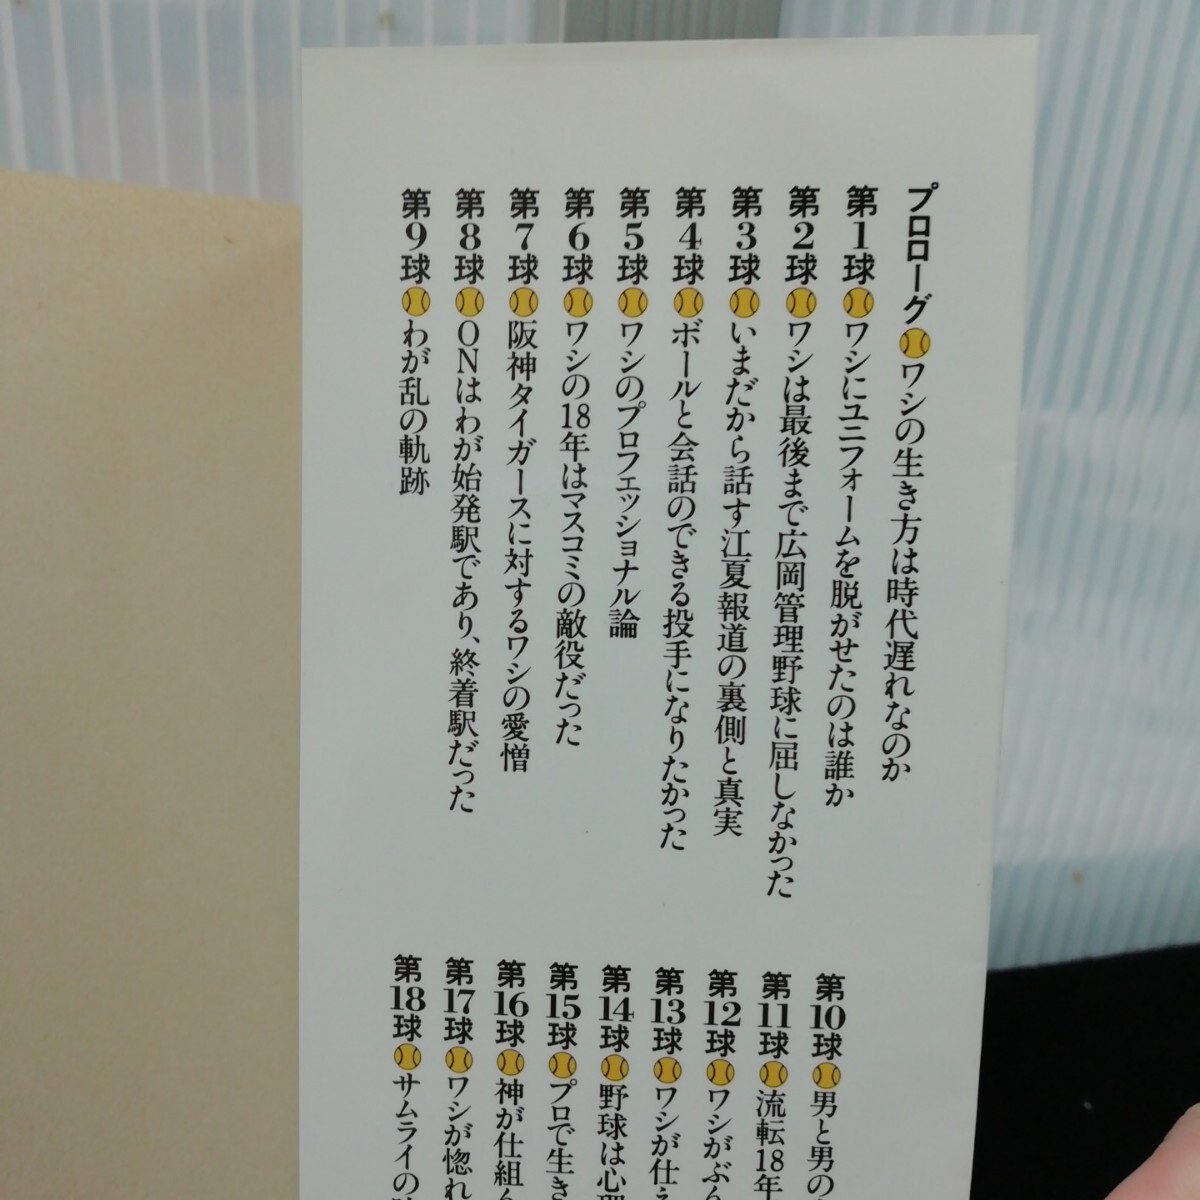 プロローグ ワシの生き方は時代遅れなのか
第1球 ワシにユニフォームを脱がせたのは誰か
第2球 ワシは最後まで広岡管理野球に屈しなかった
第3球 いまだから話す江夏報道の裏側と真実
第4球 ボールと会話のできる投手になりたかった
第5球 ワシのプロフェッショナル論
第6球 ワシの18年はマスコミの敵役だった
第7球 阪神タイガースに対するワシの愛憎
第8球 ONはわが始発駅であり、終着駅だった
第9球 わが乱の軌跡
第10球 男と男の
第11球 流転18年
第12球 ワシがぶん
第13球 ワシが仕え
第14球 野球は心理
第15球 プロで生き
第16球 神が仕組ん
第17球 ワシが惚れ
第18球 サムライの